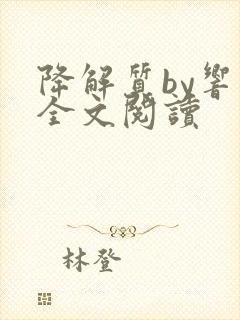 降解質by響
全文閱讀
林登